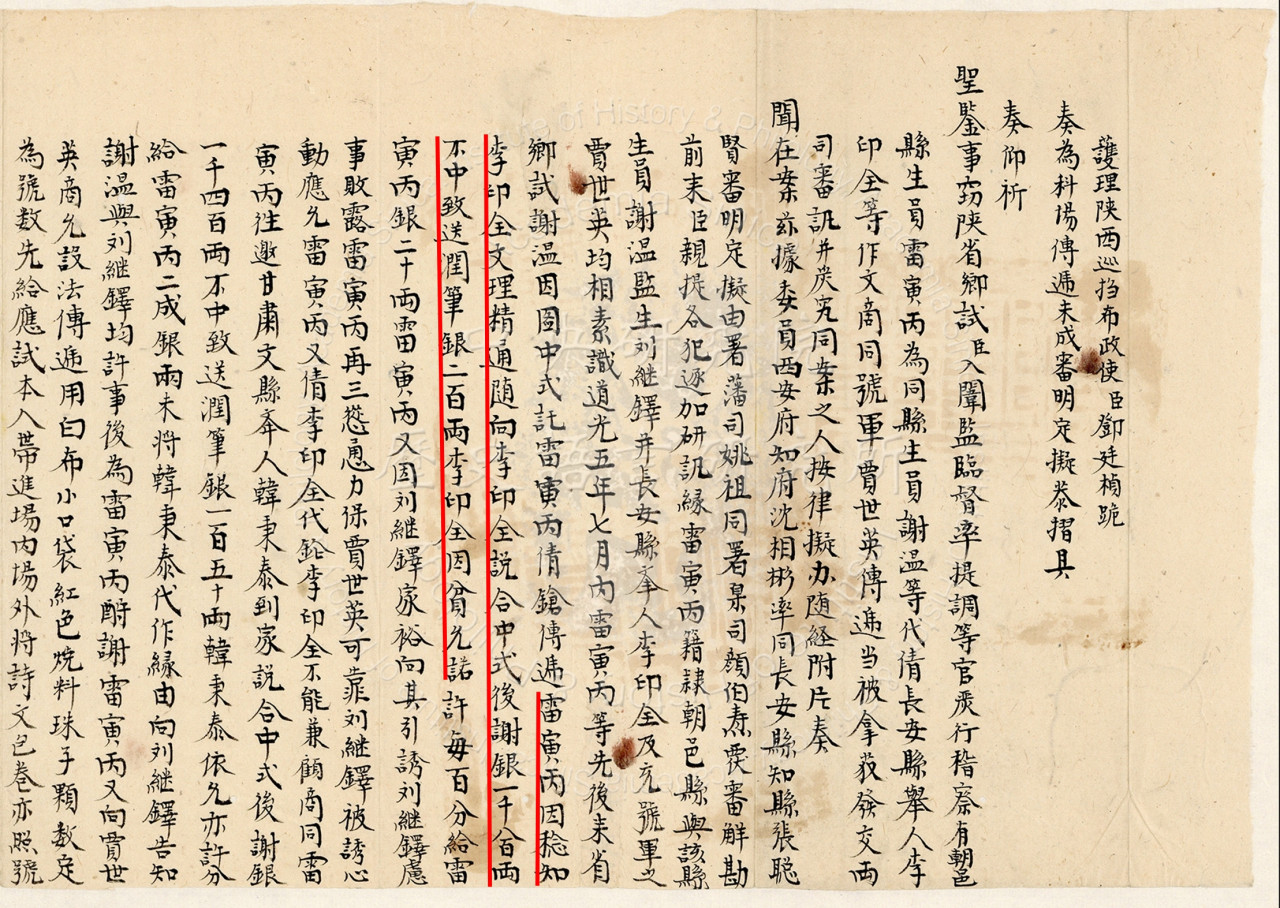 護理陝西巡撫布政使臣鄧廷楨跪
奏為科場傳遞未成審明定擬恭摺具
奏仰祈
聖鑒事窃陝省鄉試臣入闈監臨督率提調等官严行稽察有朝邑
縣生員雷寅丙為同縣生員謝温等代倩長安縣舉人李
印全等作文商同號軍賈世英傳遞当被拿获發交両
司審訊并炭究同案之人按律擬办随経附片奏
聞在案兹據委員西安府知府沈相彬率同長安縣知縣張聡
賢審明定擬由署藩司姚祖同署臬司顔伯焘覆審解勘
前来臣親提各犯逐加研訊緣雷寅丙籍隷朝邑縣與該縣
生員謝温監生刘継鐸并長安縣举人李印全及充號軍之
賈世英均相素識道光五年七月内雷寅丙等先後来省
鄉試謝温因圖中式託雷寅丙倩鎗傳遞雷寅丙因稔知
李印全文理精通随向李印全説合中式後謝銀一千百両
不中致送潤筆銀二百両李印全因貧允諾許每百分給雷
寅丙銀二十両雷寅丙又因刘継鐸家裕向其引誘刘継鐸慮
事敗露雷寅丙再三慫恿力保賈世英可靠刘継鐸被誘心
動應允雷寅丙又倩李印全代鎗李印全不能兼顧商同雷
寅丙往邀甘肅文縣举人韓秉泰到家説合中式後謝銀
一千四百両不中致送潤筆銀一百五十両韓秉泰依允亦許分
給雷寅丙二成銀両未将韓秉泰代作緣由向刘継鐸告知
謝温與刘継鐸均許事後為雷寅丙酧謝雷寅丙又向賈世
英商允設法傳遞用白布小口袋紅色烧料珠子顆数定
為號数先給應試本入帶進場内場外将詩文包卷亦照號